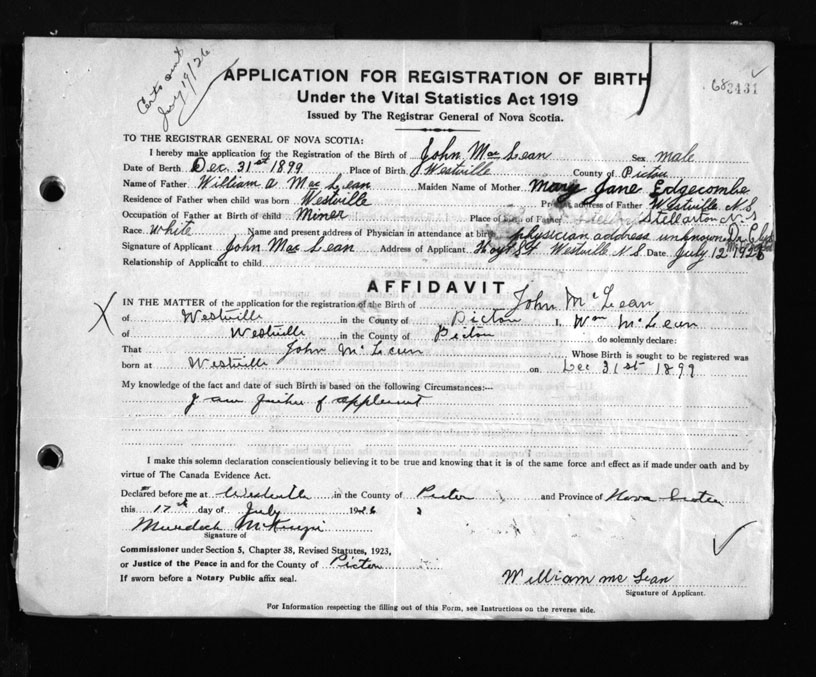 Certs sent
July 19/26
APPLICATION FOR REGISTRATION OF BIRTH
Under the Vital Statistics Act 1919
Issued by The Registrar General of Nova Scotia.
TO THE REGISTRAR GENERAL OF NOVA SCOTIA:
I hereby make application for the Registration of the Birth of John Mac Lean Sex male
Date of Birth Dec. 31st 1899 Place of Birth Westville County of Pictou
Name of Father William A Mac Lean Maiden Name of Mother Mary Jane Edgecombe
Residence of Father when child was born Westville Present address of Father Westville N.S
Occupation of Father at Birth of child Miner Place of Birth of Father Stellarton N.S
Race. White Name and present address of Physician in attendance at birth physician address unknown Dr.
Signature of Applicant John Mac Lean Address of Applicant Hoyt St. Westville N.S. Date July 12 1926
Relationship of Applicant to child
AFFIDAVIT
IN THE MATTER of the application for the registration of the Birth of John McLean
of Westville in the County of Pictou I, Wm McLean
of Westville in the County of Pictou do solemnly declare:
That John McLean Whose Birth is sought to be registered was
born at Westville on Dec 31st 1899
My knowledge of the fact and date of such Birth is based on the following Circumstances:--
I am father of applicant
I make this solemn declaration conscientiously believing it to be true and knowing that it is of the same force and effect as if made under oath and by
virtue of The Canada Evidence Act.
Declared before me at Westville in the County of Pictou and Province of Nova Scotia
this 17th day of July 1926
Murdoch McKenzie
Signature of
Commissioner under Section 5, Chapter 38, Revised Statutes, 1923,
or Justice of the Peace in and for the County of Pictou
If sworn before a Notary Public affix seal.
William Mc Lean
Signature of Applicant.
For Information respecting the filling out of this Form, see Instructions on the reverse side.